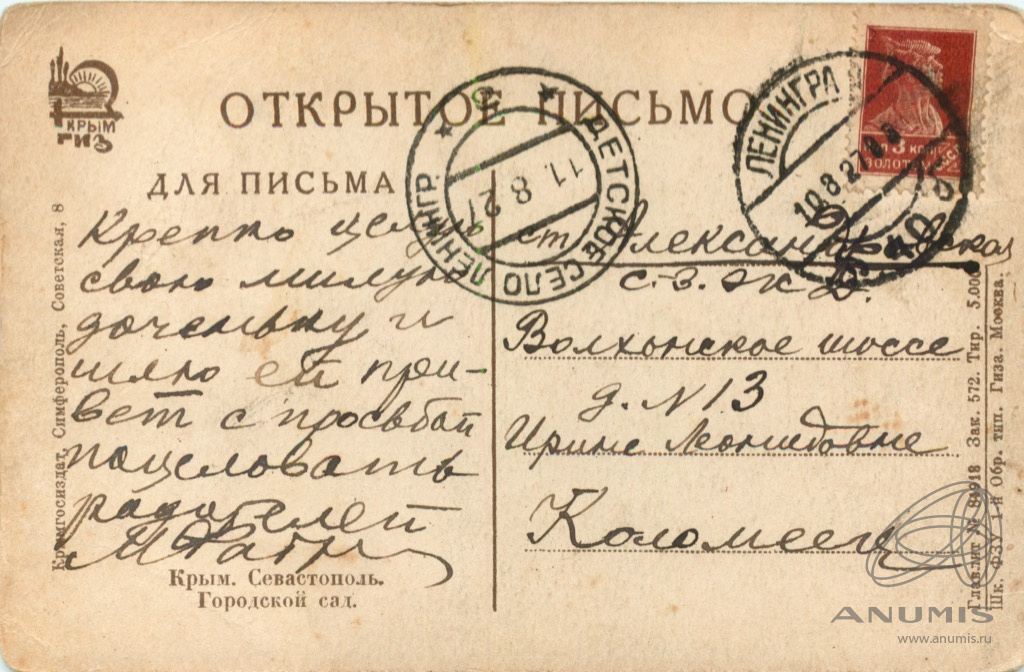 КРЫМ
ГИЗ
ОТКРЫТОЕ ПИСЬМО
ДЛЯ ПИСЬМА
Крепко целую
свою милую
доченьку и
шлю ей при-
вет с просьбой
поцеловать
родителей
Крым. Севастополь.
Городской сад.
Крымгосиздат, Симферополь, Советская, 8
ДЕТСКОЕ СЕЛО ЛЕНИНГР.
11.8.27
ЛЕНИНГРА
10.8.27
3 КОП
ЗОЛОТ
ст. Александровская
с.-з. ж. д.
Волхонское шоссе
д. N 13
Ирине Леонидовне
Коломеец
Главлит № 84918 Зак. 572. Тир. 5.000
Шк. ФЗУ 1-й Обр. тип. Гиза. Москва.
ANUMIS
www.anumis.ru